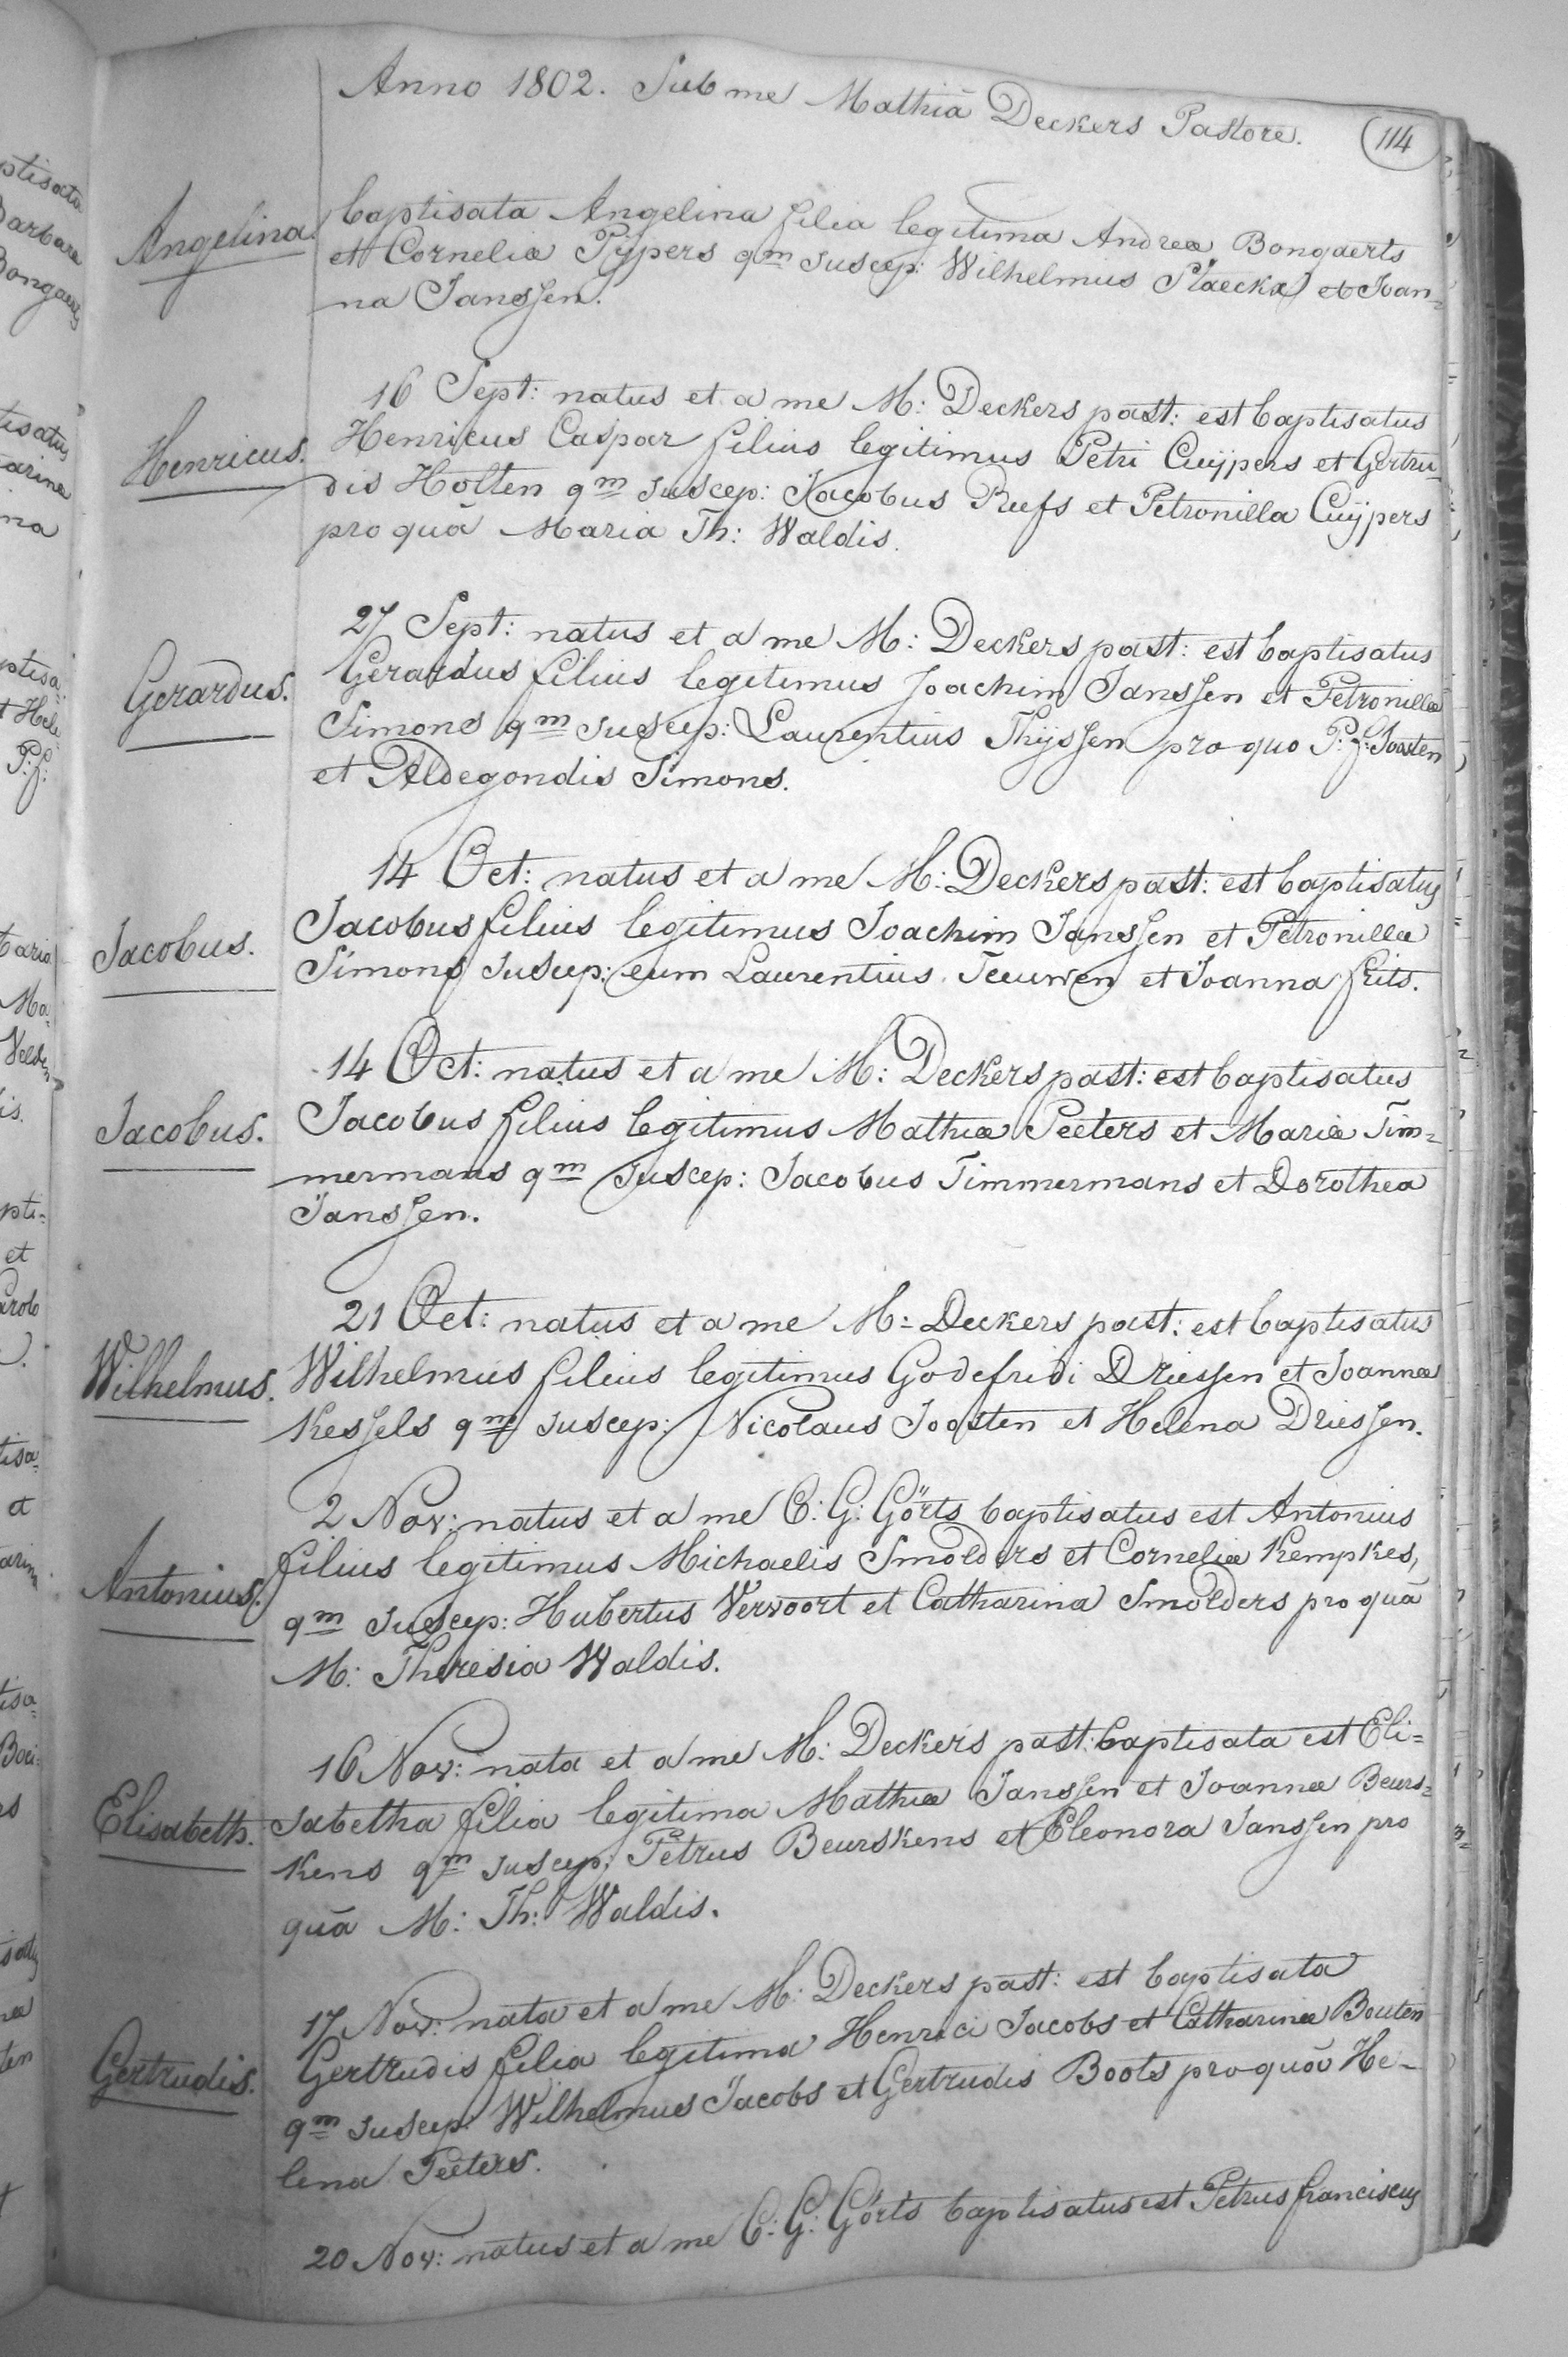 Anno 1802. Sub me Mathiā Deckers Pastore.
114
Angelina.
baptisata Angelina filia legitima Andreæ Bongaerts
et Corneliæ Pÿpers qm suscep: Wilhelmus et Joan=
na Janssen.
Henricus.
16 Sept: natus et a me M: Deckers past: est baptisatus
Henricus Caspar filius legitimus Petri Cuÿpers et Gertru=
dis Holten qm suscep: Jacobus Reefs et Petronilla Cuÿpers
pro quā Maria Th: Waldis.
Gerardus.
27 Sept: natus et a me M: Deckers past: est baptisatus
Gerardus filius legitimus Joachim Janssen et Petronillæ
Simons qm suscep: Laurentius Thÿssen pro quo P: f: Joosten
et Aldegondis Simons.
Jacobus.
14 Oct: natus et a me M: Deckers past: est baptisatus
Jacobus filius legitimus Joachim Janssen et Petronillæ
Simons suscep: eum Laurentius Teeuwen et Joanna frits.
Jacobus.
14 Oct: natus et a me M: Deckers past: est baptisatus
Jacobus filius legitimus Mathiæ Peeters et Mariæ Tim=
mermans qm suscep: Jacobus Timmermans et Dorothea
Janssen.
Wilhelmus.
21 Oct: natus et a me M: Deckers past: est baptisatus
Wilhelmus filius legitimus Godefridi Driessen et Joannæ
Kessels qm suscep: Nicolaus Joosten et Helena Driessen.
Antonius.
2 Nov: natus et a me C: G: Görts baptisatus est Antonius
filius legitimus Michaelis Smolders et Corneliæ Kempkes,
qm suscep: Hubertus Vervoort et Catharina Smolders pro quā
M: Theresia Waldis.
Elisabeth.
16 Nov: nata et a me M: Deckers past: baptisata est Eli=
sabetha filia legitima Mathiæ Janssen et Joannæ Beurs=
kens qm suscep: Petrus Beurskens et Eleonora Janssen pro
quā M: Th: Waldis.
Gertrudis.
17 Nov: nata et a me M: Deckers past: est baptisata
Gertrudis filia legitima Henrici Jacobs et Catharinæ Bouten
qm suscep: Wilhelmus Jacobs et Gertrudis Boots pro quā He-
lena Peeters.
20 Nov: natus et a me C: G: Görts baptisatus est Petrus franciscus